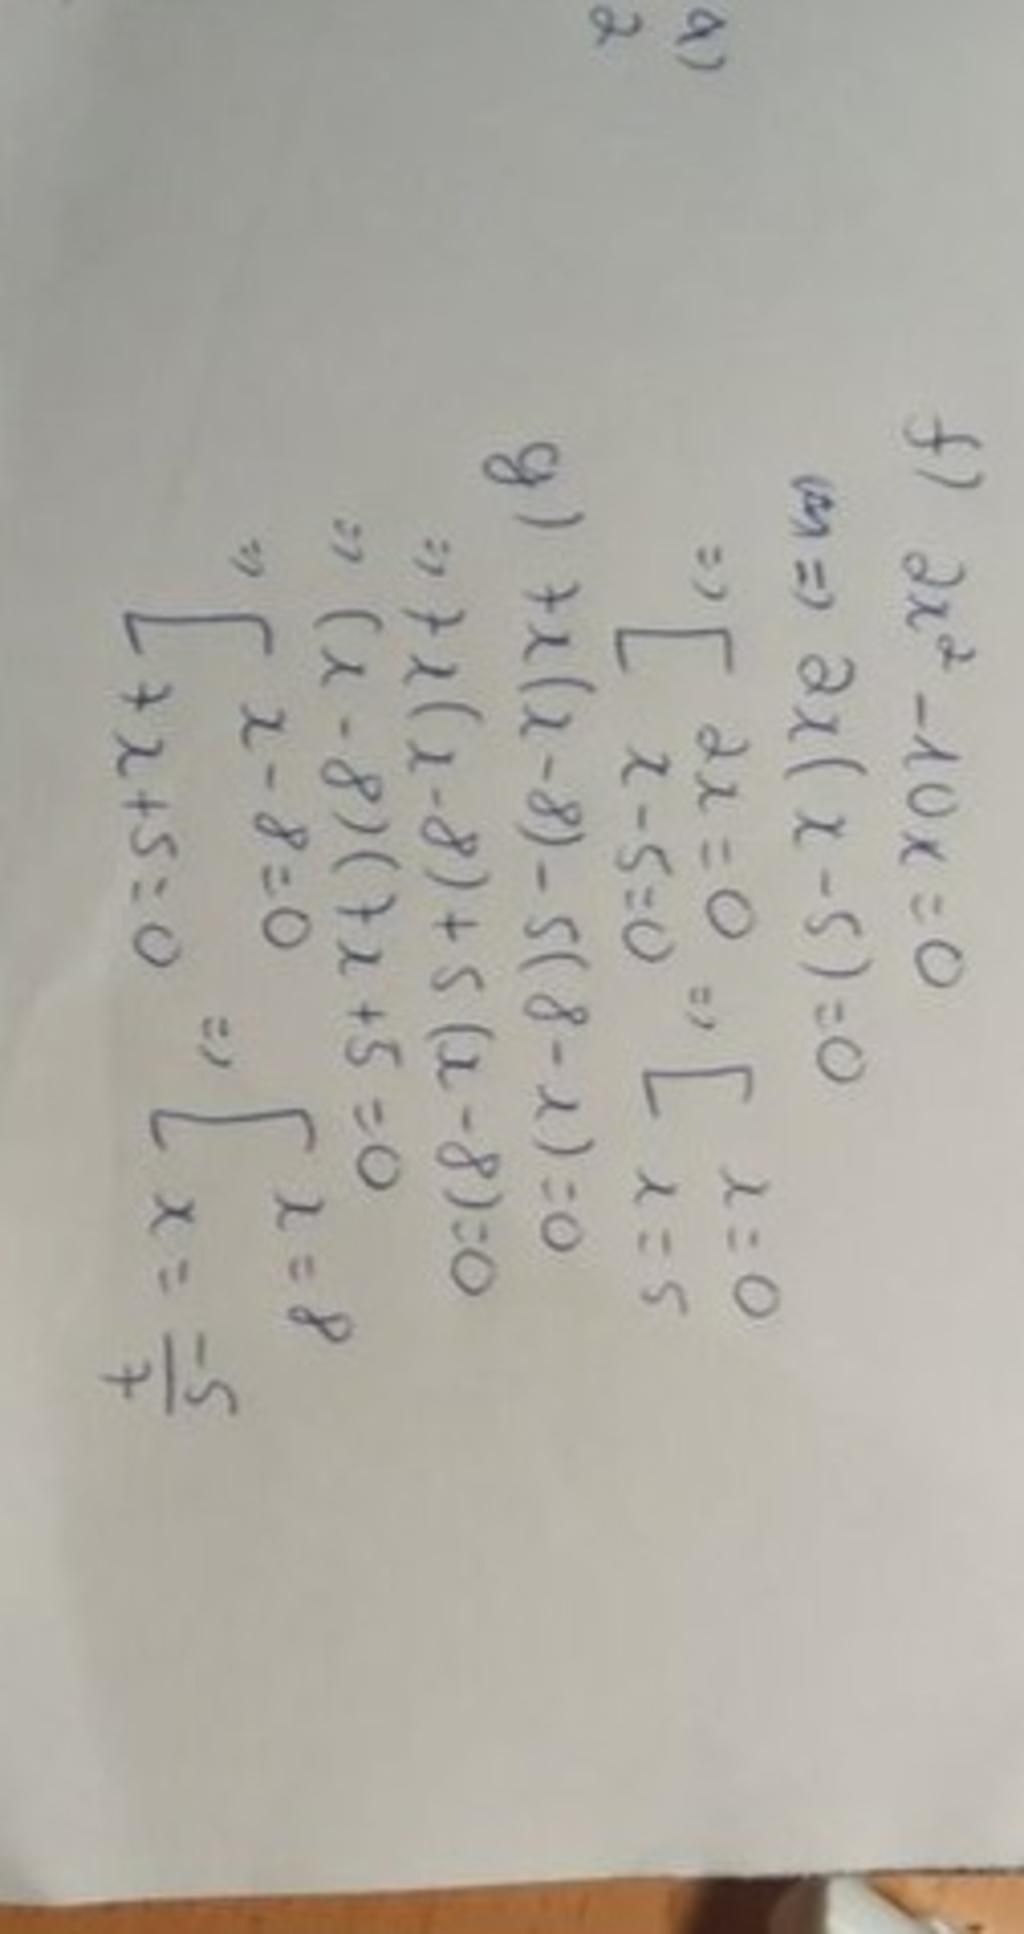 a)
2
f) 2x² - 10x = 0
=> 2x(x - 5) = 0
=> [ 2x = 0 => [ x = 0
x - 5 = 0 x = 5
g) 7x(x - 8) - 5(8 - x) = 0
=> 7x(x - 8) + 5(x - 8) = 0
=> (x - 8)(7x + 5 = 0
=> [ x - 8 = 0 => [ x = 8
7x + 5 = 0 x = -5/7